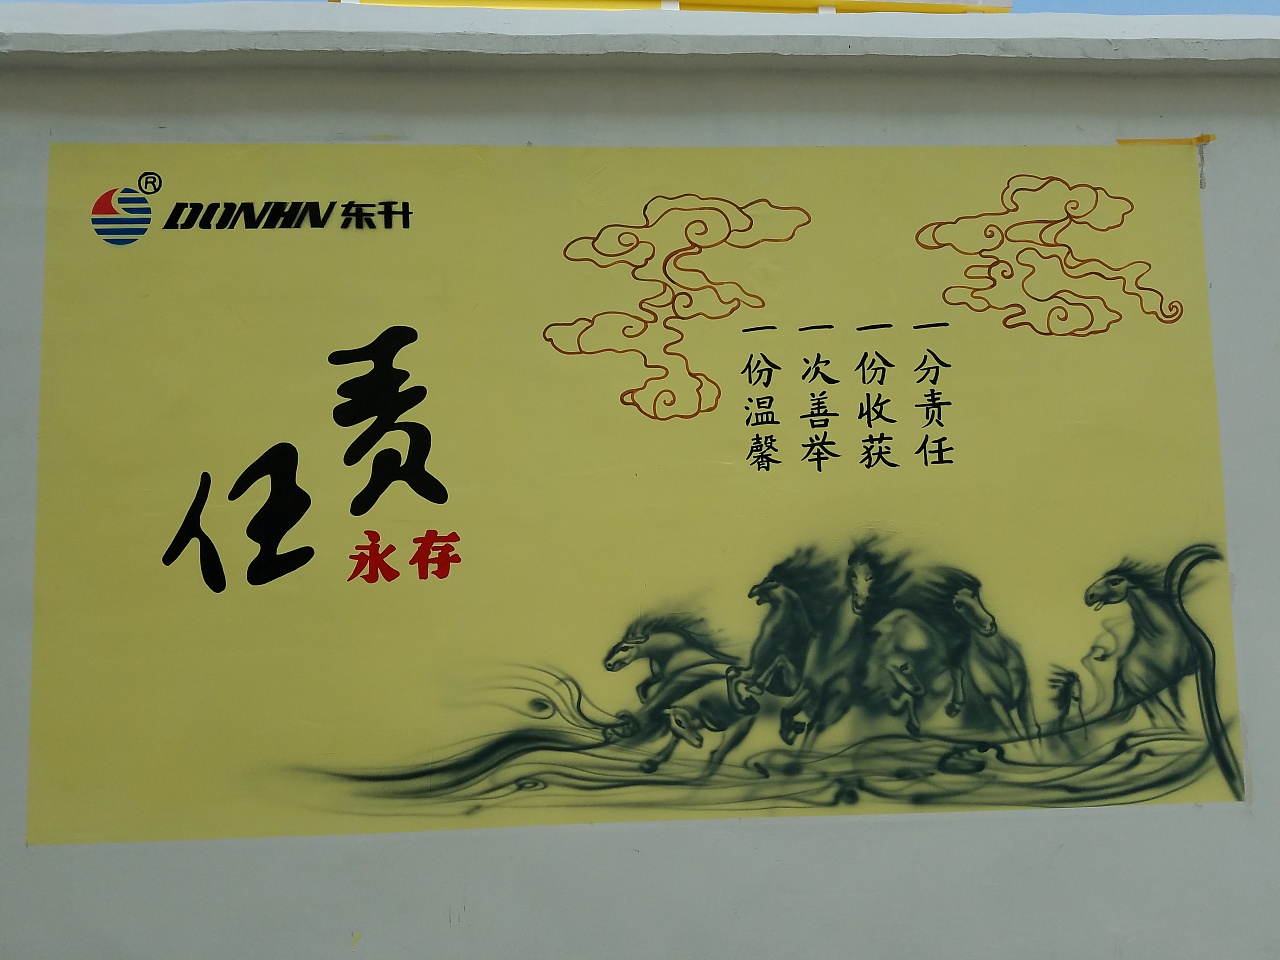 ® DONHN 东升
责任
永存
一分责任
一份收获
一次善举
一份温馨